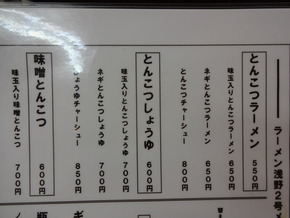 ラーメン浅野2号
とんこつラーメン 550円
味玉入りとんこつラーメン 650円
ネギとんこつラーメン 650円
とんこつチャーシュー 800円
とんこつしょうゆ 600円
味玉入りとんこつしょうゆ 700円
ネギとんこつしょうゆ 700円
しょうゆチャーシュー 850円
味噌とんこつ 600円
味玉入り味噌とんこつ 700円